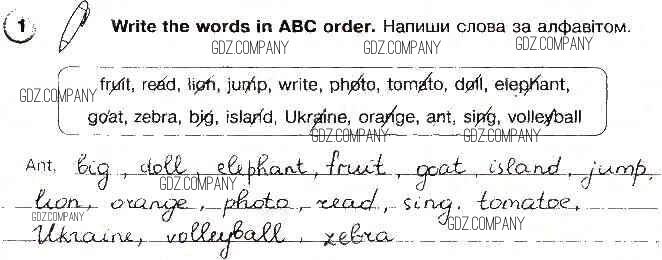 1 Write the words in ABC order. Напиши слова за алфавітом.
GDZ.COMPANY GDZ.COMPANY GDZ.COMPANY
fruit, read, lion, jump, write, photo, tomato, doll, elephant,
GDZ.COMPANY
goat, zebra, big, island, Ukraine, orange, ant, sing, volleyball
GDZ.COMPANY GDZ.COMPANY
Ant, big, doll, elephant, fruit, goat, island, jump,
GDZ.COMPANY
lion, orange, photo, read, sing, tomatoe,
GDZ.COMPANY GDZ.COMPANY
Ukraine, volleyball, zebra
GDZ.COMPANY